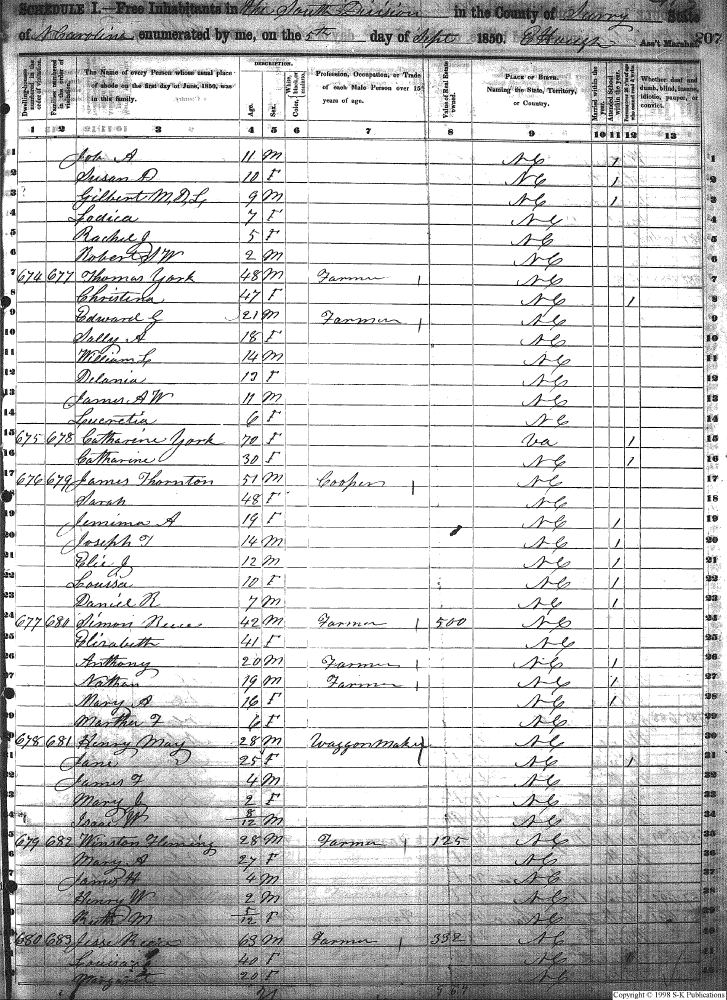 SCHEDULE I.—Free Inhabitants in the South Division in the County of Surry State
of N Carolina enumerated by me, on the 5th day of Sept 1850. Ass't Marshal. 207
DESCRIPTION.
Dwelling-houses numbered in the order of visitation. Families numbered in the order of visitation. The Name of every Person whose usual place of abode on the first day of June, 1850, was in this family. Age. Sex. Color, White, black, or mulatto. Profession, Occupation, or Trade of each Male Person over 15 years of age. Value of Real Estate owned. PLACE OF BIRTH. Naming the State, Territory, or Country. Married within the year. Attended School within the year. Whether deaf and dumb, blind, insane, idiotic, pauper, or convict.
1 2 3 4 5 6 7 8 9 10 11 12 13
1 Job A 11 M NC 1 1
2 Susan D 10 F NC 1 2
3 Gilbert M.D.L. 9 M NC 1 3
4 Lodica 7 F NC 4
5 Rachel J 5 F NC 5
6 Robert W 2 M NC 6
7 674 677 Thomas York 48 M Farmer 1 NC 7
8 Christina 47 F NC 1 8
9 Edward G 21 M Farmer 1 NC 9
10 Sally A 18 F NC 10
11 William L 14 M NC 11
12 Delania 13 F NC 12
13 James A W 11 M NC 13
14 Lucretia 6 F NC 14
15 675 678 Catharine York 70 F Va 1 15
16 Catharine 30 F NC 1 16
17 676 679 James Thornton 51 M Cooper 1 NC 17
18 Sarah 48 F NC 18
19 Jemima A 19 F NC 1 19
20 Joseph T 14 M NC 1 20
21 Elie J 12 M NC 1 21
22 Louisa 10 F NC 1 22
23 Daniel R 7 M NC 1 23
24 677 680 Simon Reece 42 M Farmer 1 500 NC 24
25 Elizabeth 41 F NC 25
26 Anthony 20 M Farmer 1 NC 1 26
27 Nathan 19 M Farmer 1 NC 1 27
28 Mary A 16 F NC 1 28
29 Marther F 6 F NC 29
30 678 681 Henry May 28 M Waggon Maker 1 NC 30
31 Jane 25 F NC 1 31
32 James F 4 M NC 32
33 Mary J 2 F NC 33
34 Isaac W 8/12 M NC 34
35 679 682 Winston Fleming 28 M Farmer 1 125 NC 35
36 Mary A 27 F NC 36
37 James H 4 M NC 37
38 Henry W 2 M NC 38
39 Ruth M /12 F NC 39
40 680 683 Jesse Reece 63 M Farmer 1 332 NC 40
41 Louisa 40 F NC 41
42 Margaret 20 F NC 42
Copyright © 1998 S-K Publications